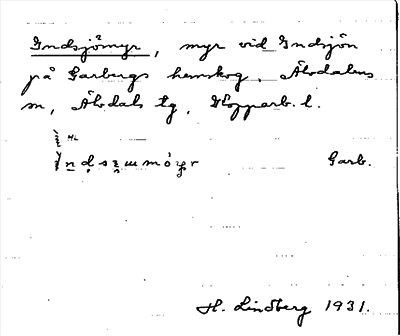 Gndsjömyr, myr vid Gndsjön
på Garbergs hemskog, Älvdalens
sn, Älvdals tg, Kopparb. l.
HL
Garb.
H. Lindberg 1931.